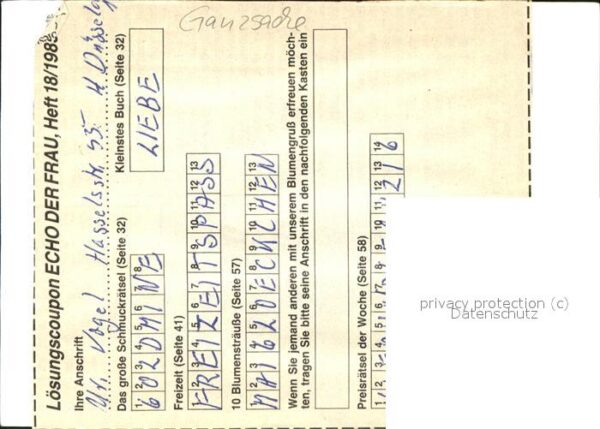 Ganzsache
Lösungscoupon ECHO DER FRAU, Heft 18/198
Ihre Anschrift
Vogel Hasselsstr. 55 4 Düsseld
Das große Schmuckrätsel (Seite 32)
1 2 3 4 5 6 7 8
GOLDMINE
Kleinstes Buch (Seite 32)
LIEBE
Freizeit (Seite 41)
1 2 3 4 5 6 7 8 9 10 11 12 13
FREIZEITSPASS
10 Blumensträuße (Seite 57)
1 2 3 4 5 6 7 8 9 10 11 12 13
MAIGLOECKCHEN
Wenn Sie jemand anderen mit unserem Blumengruß erfreuen möch-
ten, tragen Sie bitte seine Anschrift in den nachfolgenden Kasten ein
Preisrätsel der Woche (Seite 58)
1 2 3 4 5 6 7 8 9 10 11 12 13 14
privacy protection (c)
Datenschutz